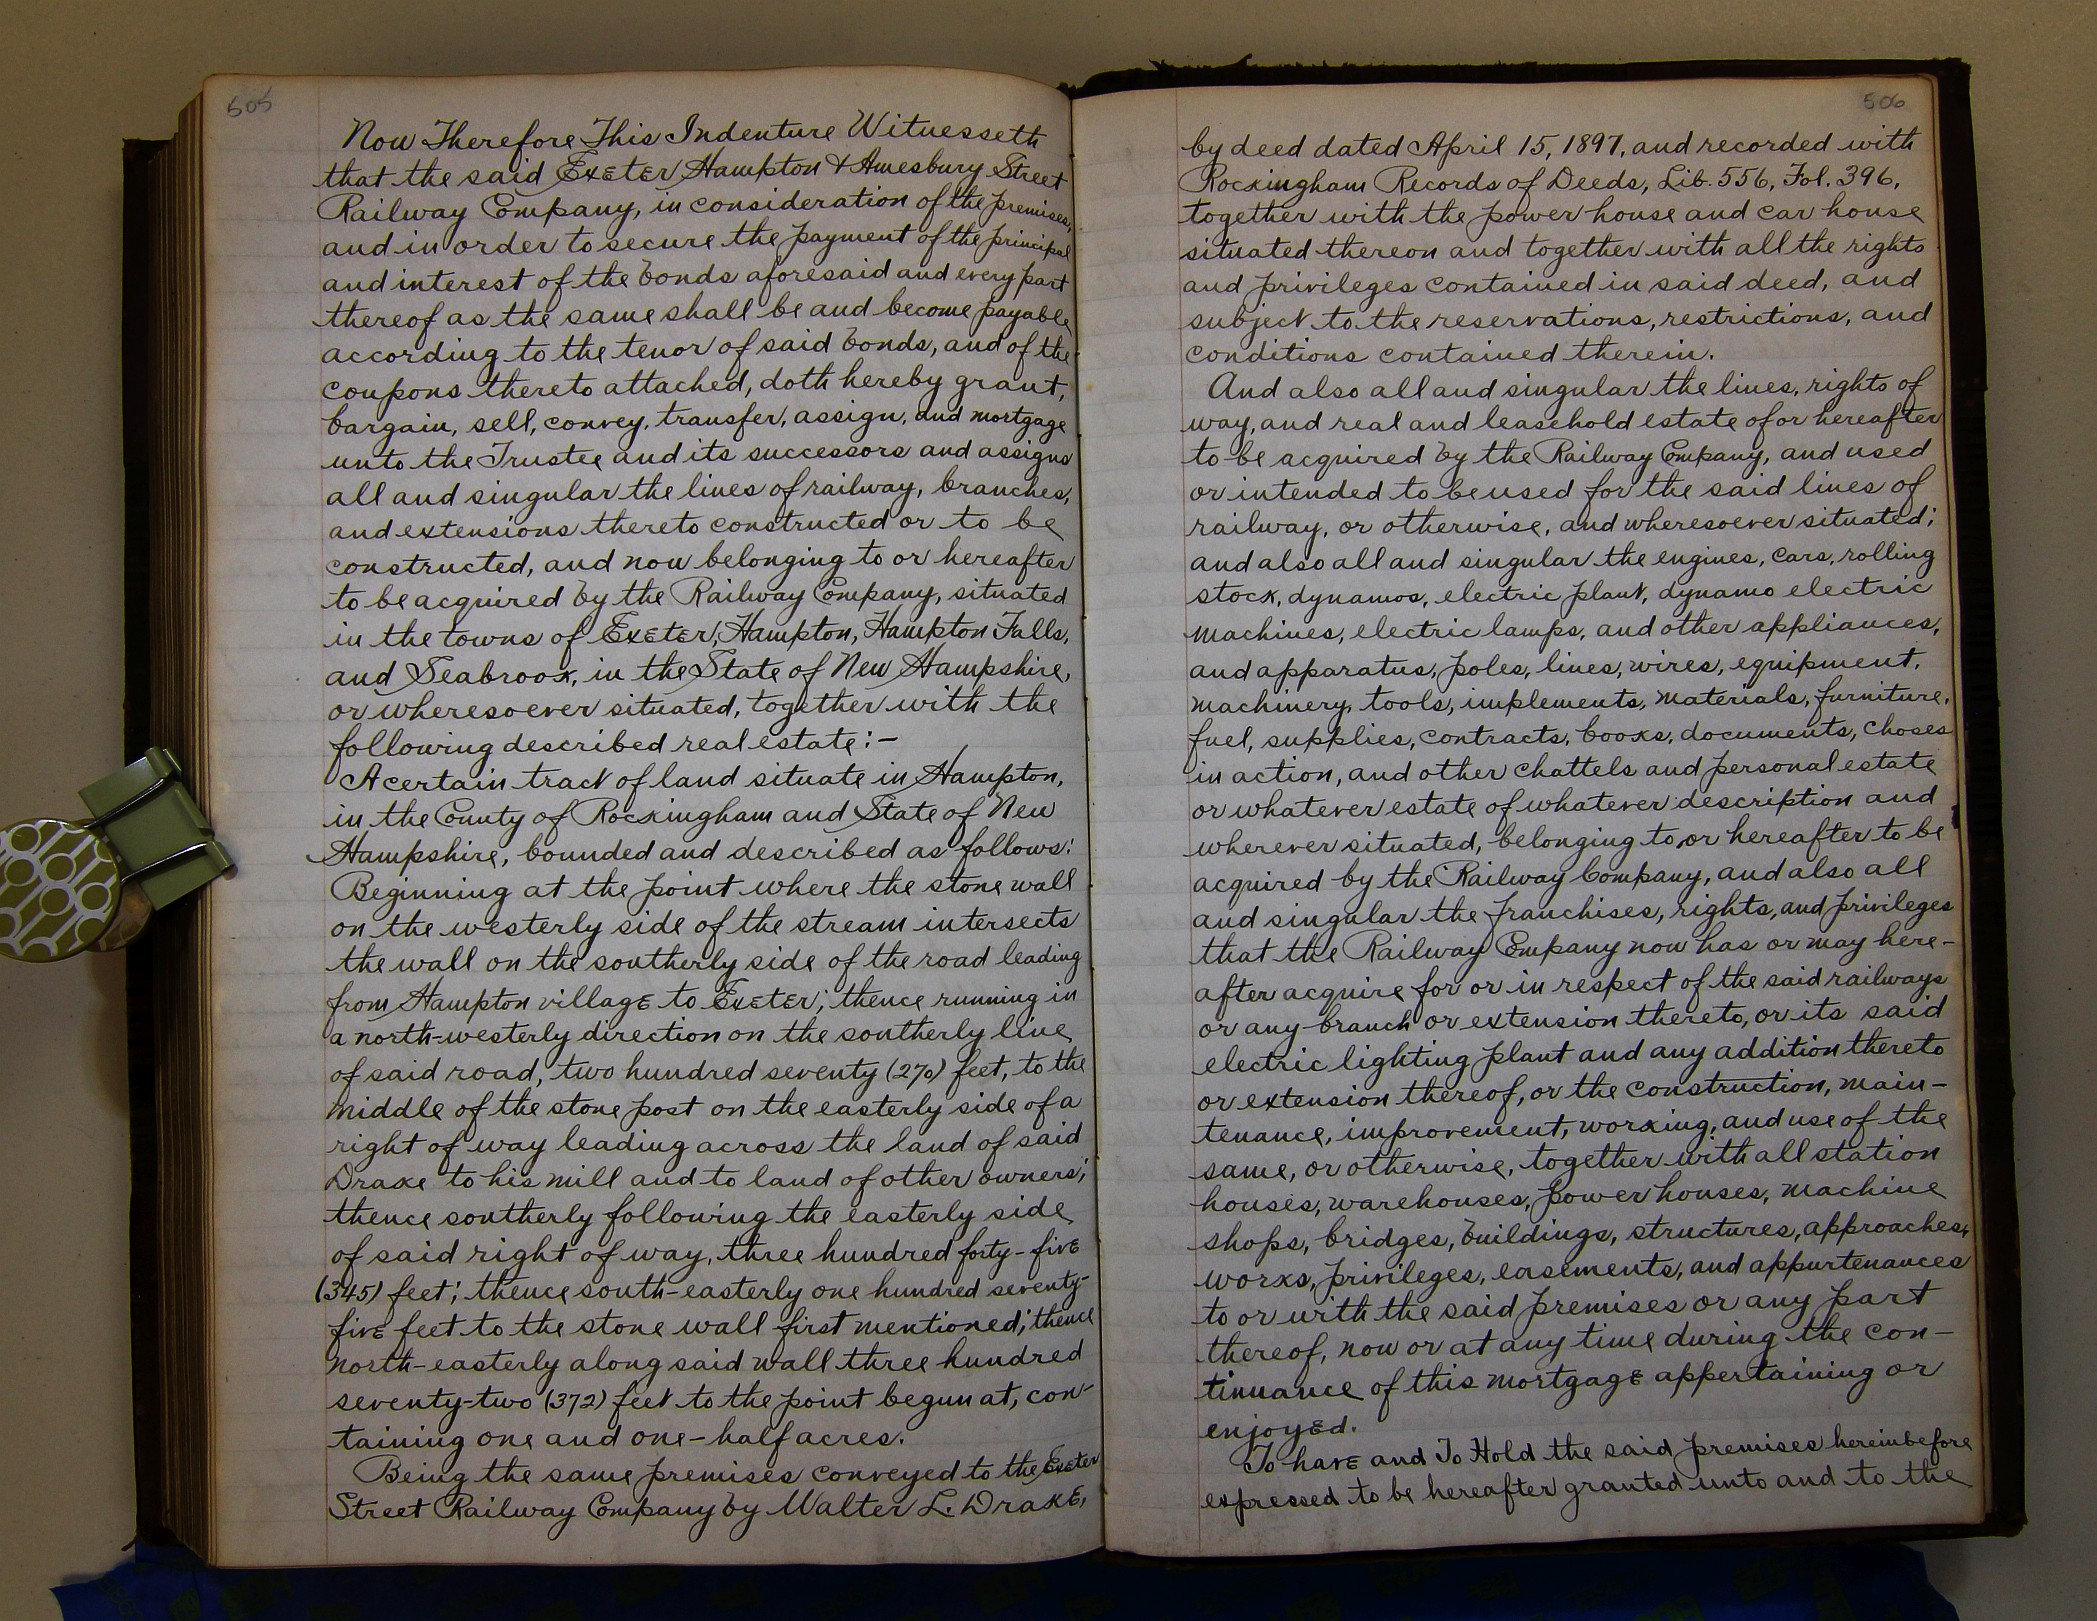 505
Now Therefore This Indenture Witnesseth
that the said Exeter Hampton & Amesbury Street
Railway Company, in consideration of the premises,
and in order to secure the payment of the principal
and interest of the bonds aforesaid and every part
thereof as the same shall be and become payable
according to the tenor of said bonds, and of the
coupons thereto attached, doth hereby grant,
bargain, sell, convey, transfer, assign, and mortgage
unto the Trustee and its successors and assigns
all and singular the lines of railway, branches,
and extensions thereto constructed or to be
constructed, and now belonging to or hereafter
to be acquired by the Railway Company, situated
in the towns of Exeter, Hampton, Hampton Falls,
and Seabrook, in the State of New Hampshire,
or wheresoever situated, together with the
following described real estate:-
A certain tract of land situate in Hampton,
in the County of Rockingham and State of New
Hampshire, bounded and described as follows:
Beginning at the point where the stone wall
on the westerly side of the stream intersects
the wall on the southerly side of the road leading
from Hampton village to Exeter; thence running in
a north-westerly direction on the southerly line
of said road, two hundred seventy (270) feet, to the
middle of the stone post on the easterly side of a
right of way leading across the land of said
Drake to his mill and to land of other owners;
thence southerly following the easterly side
of said right of way, three hundred forty-five
(345) feet; thence south-easterly one hundred seventy-
five feet to the stone wall first mentioned; thence
north-easterly along said wall three hundred
seventy-two (372) feet to the point begun at, con-
taining one and one-half acres.
Being the same premises conveyed to the Exeter
Street Railway Company by Walter L. Drake,
506
by deed dated April 15, 1897, and recorded with
Rockingham Records of Deeds, Lib. 556, Fol. 396,
together with the power house and car house
situated thereon and together with all the rights
and privileges contained in said deed, and
subject to the reservations, restrictions, and
conditions contained therein.
And also all and singular the lines, rights of
way, and real and leasehold estate of or hereafter
to be acquired by the Railway Company, and used
or intended to be used for the said lines of
railway, or otherwise, and wheresoever situated;
and also all and singular the engines, cars, rolling
stock, dynamos, electric plant, dynamo electric
machines, electric lamps, and other appliances,
and apparatus, poles, lines, wires, equipment,
machinery, tools, implements, materials, furniture,
fuel, supplies, contracts, books, documents, choses
in action, and other chattels and personal estate
or whatever estate of whatever description and
wherever situated, belonging to or hereafter to be
acquired by the Railway Company, and also all
and singular the franchises, rights, and privileges
that the Railway Company now has or may here-
after acquire for or in respect of the said railways
or any branch or extension thereto, or its said
electric lighting plant and any addition thereto
or extension thereof, or the construction, main-
tenance, improvement, working, and use of the
same, or otherwise, together with all station
houses, warehouses, power houses, machine
shops, bridges, buildings, structures, approaches,
works, privileges, easements, and appurtenances
to or with the said premises or any part
thereof, now or at any time during the con-
tinuance of this mortgage appertaining or
enjoyed.
To have and To Hold the said premises hereinbefore
expressed to be hereafter granted unto and to the